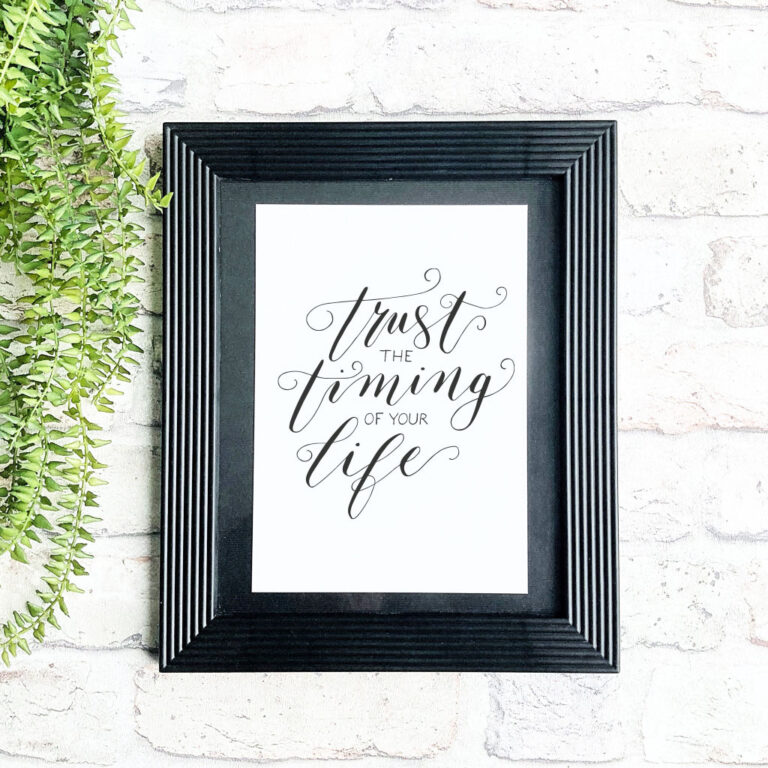 trust
THE
timing
OF YOUR
life